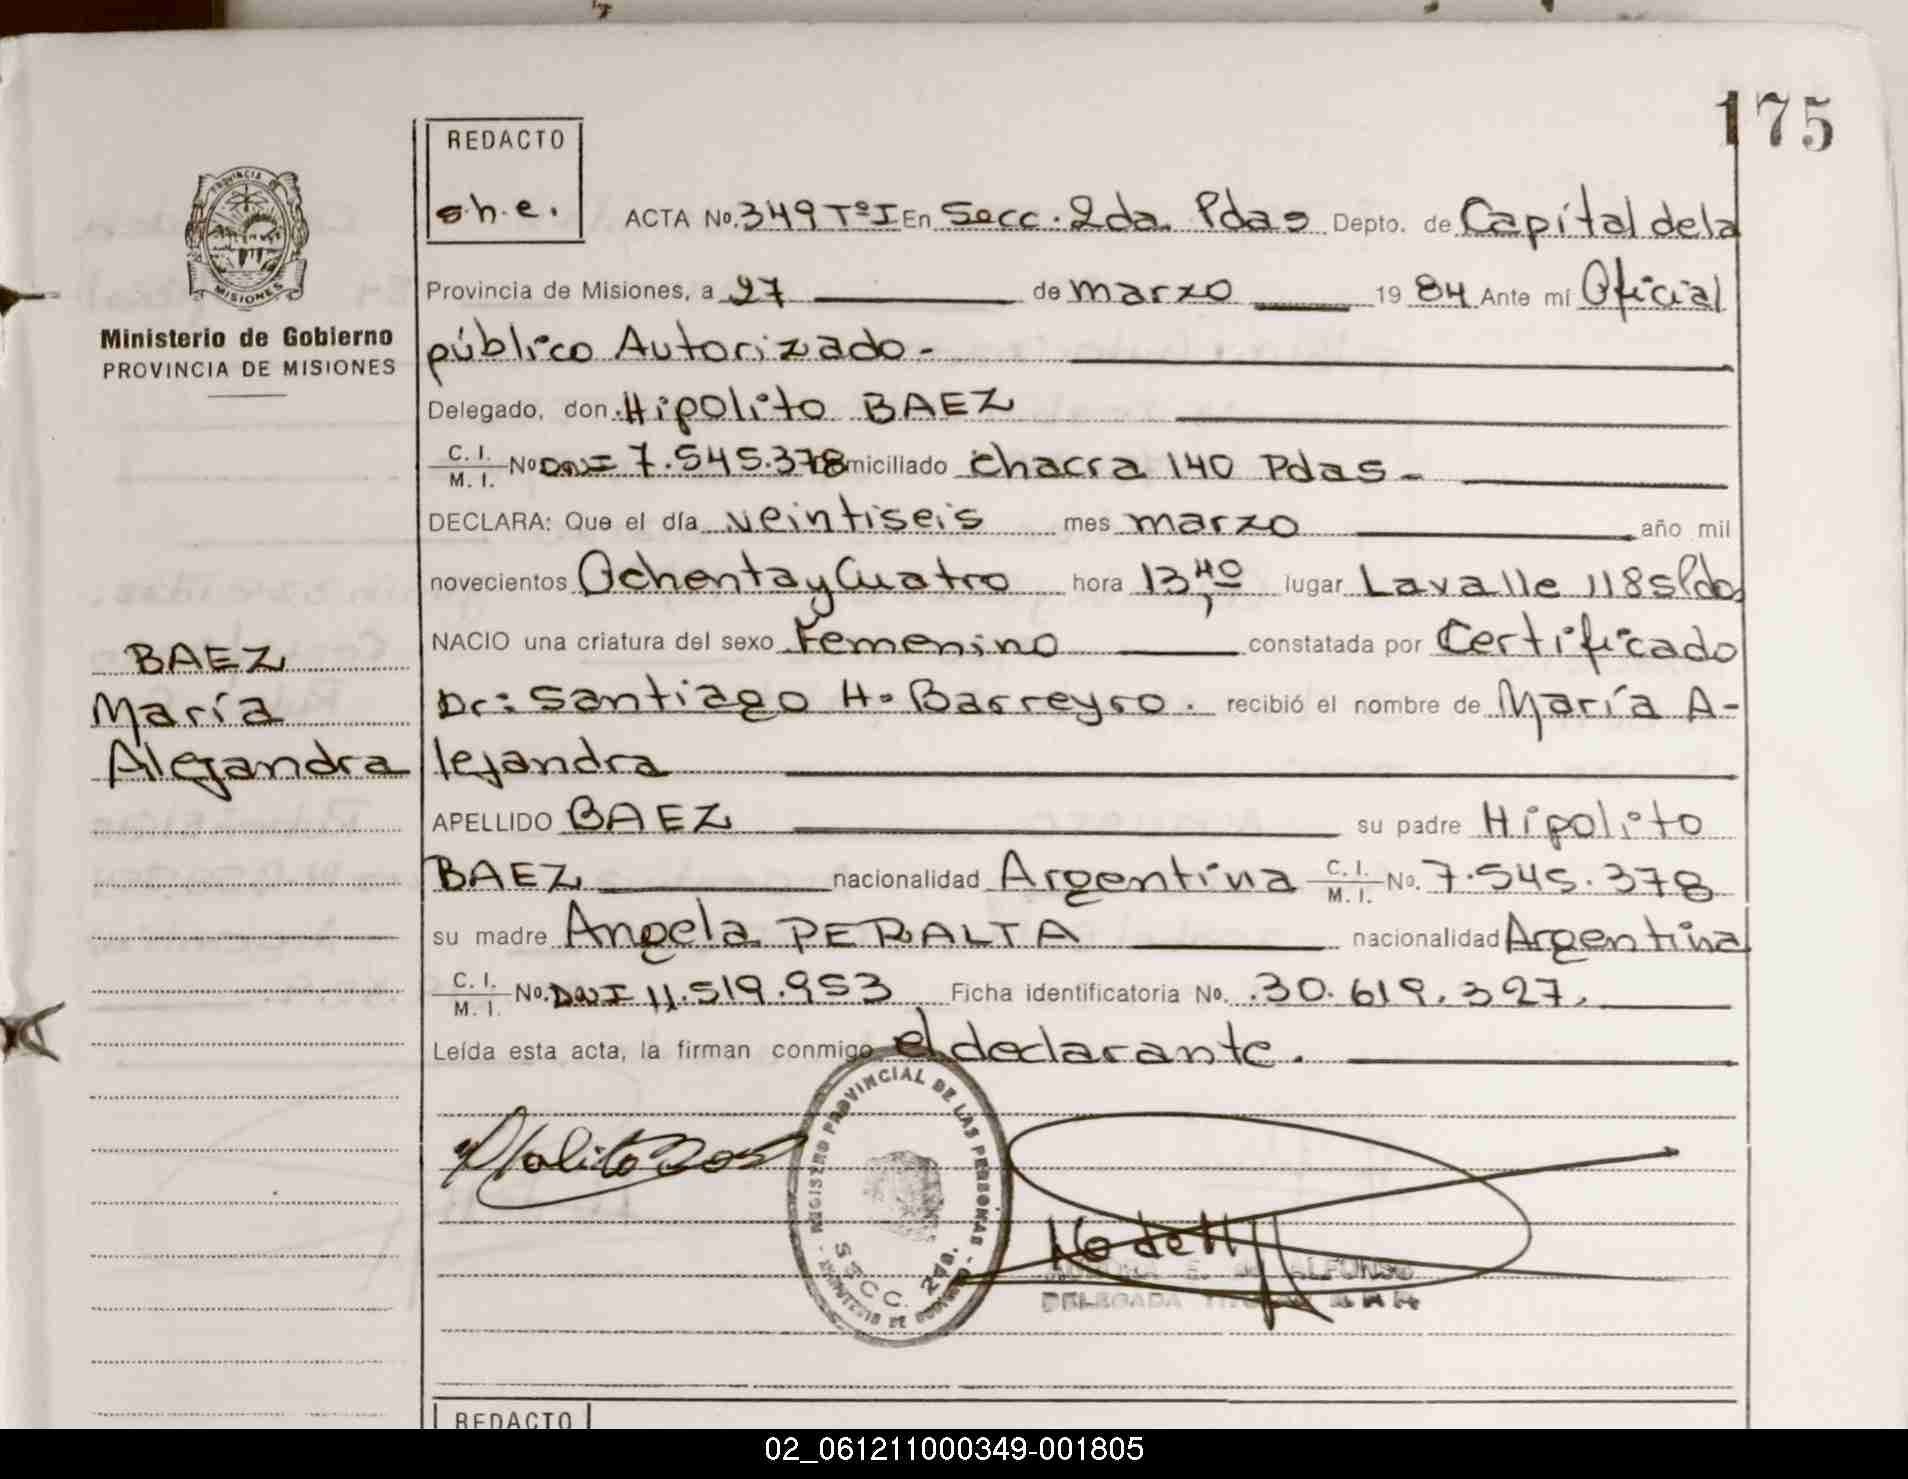 175
REDACTO
s.h.e.
PROVINCIA DE
MISIONES
Ministerio de Gobierno
PROVINCIA DE MISIONES
ACTA No. 349 TºI En Secc. 2da. Pdas Depto. de Capital de la
Provincia de Misiones, a 27 de marzo 1984 Ante mí Oficial
público Autorizado.-
Delegado, don Hipolito BAEZ
C. I.
M. I. No DNI 7.545.378 domiciliado chacra 140 Pdas-
DECLARA: Que el día veintiseis mes marzo año mil
novecientos Ochenta y Cuatro hora 13,40 lugar Lavalle 118 s/Pdas
NACIO una criatura del sexo Femenino constatada por Certificado
Dr: Santiago H. Barreyro. recibió el nombre de María A-
lejandra
BAEZ
María
Alejandra
APELLIDO BAEZ su padre Hípolito
BAEZ nacionalidad Argentina C. I. M. I. No. 7.545.378
su madre Angela PERALTA nacionalidad Argentina
C. I.
M. I. No. DNI 11.519.953 Ficha identificatoria No. 30.619.327.
Leída esta acta, la firman conmigo el declarante.
REGISTRO PROVINCIAL DE LAS PERSONAS
SECC. 2da.
MINISTERIO DE GOBIERNO
E. de ALFONSO
DELEGADA TITULAR
REDACTO
02_061211000349-001805